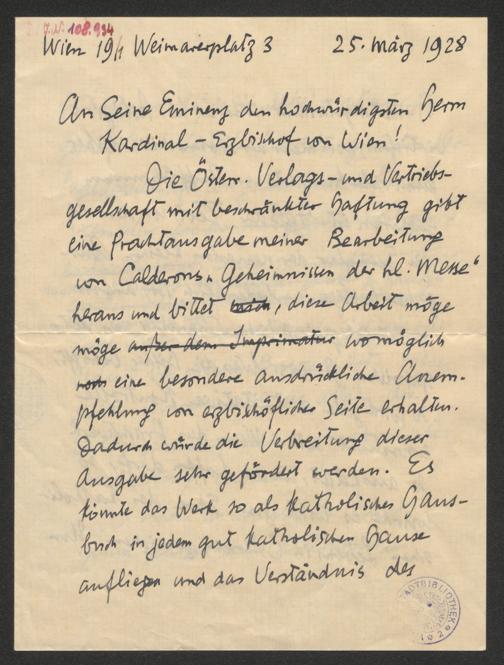 J.N. 108.994
Wien 19/1 Weimarerplatz 3 25. März 1928
An Seine Eminenz den hochwürdigsten Herrn
Kardinal – Erzbischof von Wien!
Die Österr. Verlags- und Vertriebs-
gesellschaft mit beschränkter Haftung gibt
eine Prachtausgabe meiner Bearbeitung
von Calderons „Geheimnissen der hl. Messe“
heraus und bittet, diese Arbeit möge
möge außer dem Imprimatur womöglich
noch eine besondere ausdrückliche Anem-
pfehlung von erzbischöflicher Seite erhalten.
Dadurch würde die Verbreitung dieser
Ausgabe sehr gefördert werden. Es
könnte das Werk so als katholisches Haus-
buch in jedem gut katholischen Hause
aufliegen und das Verständnis des
STADTBIBLIOTHEK